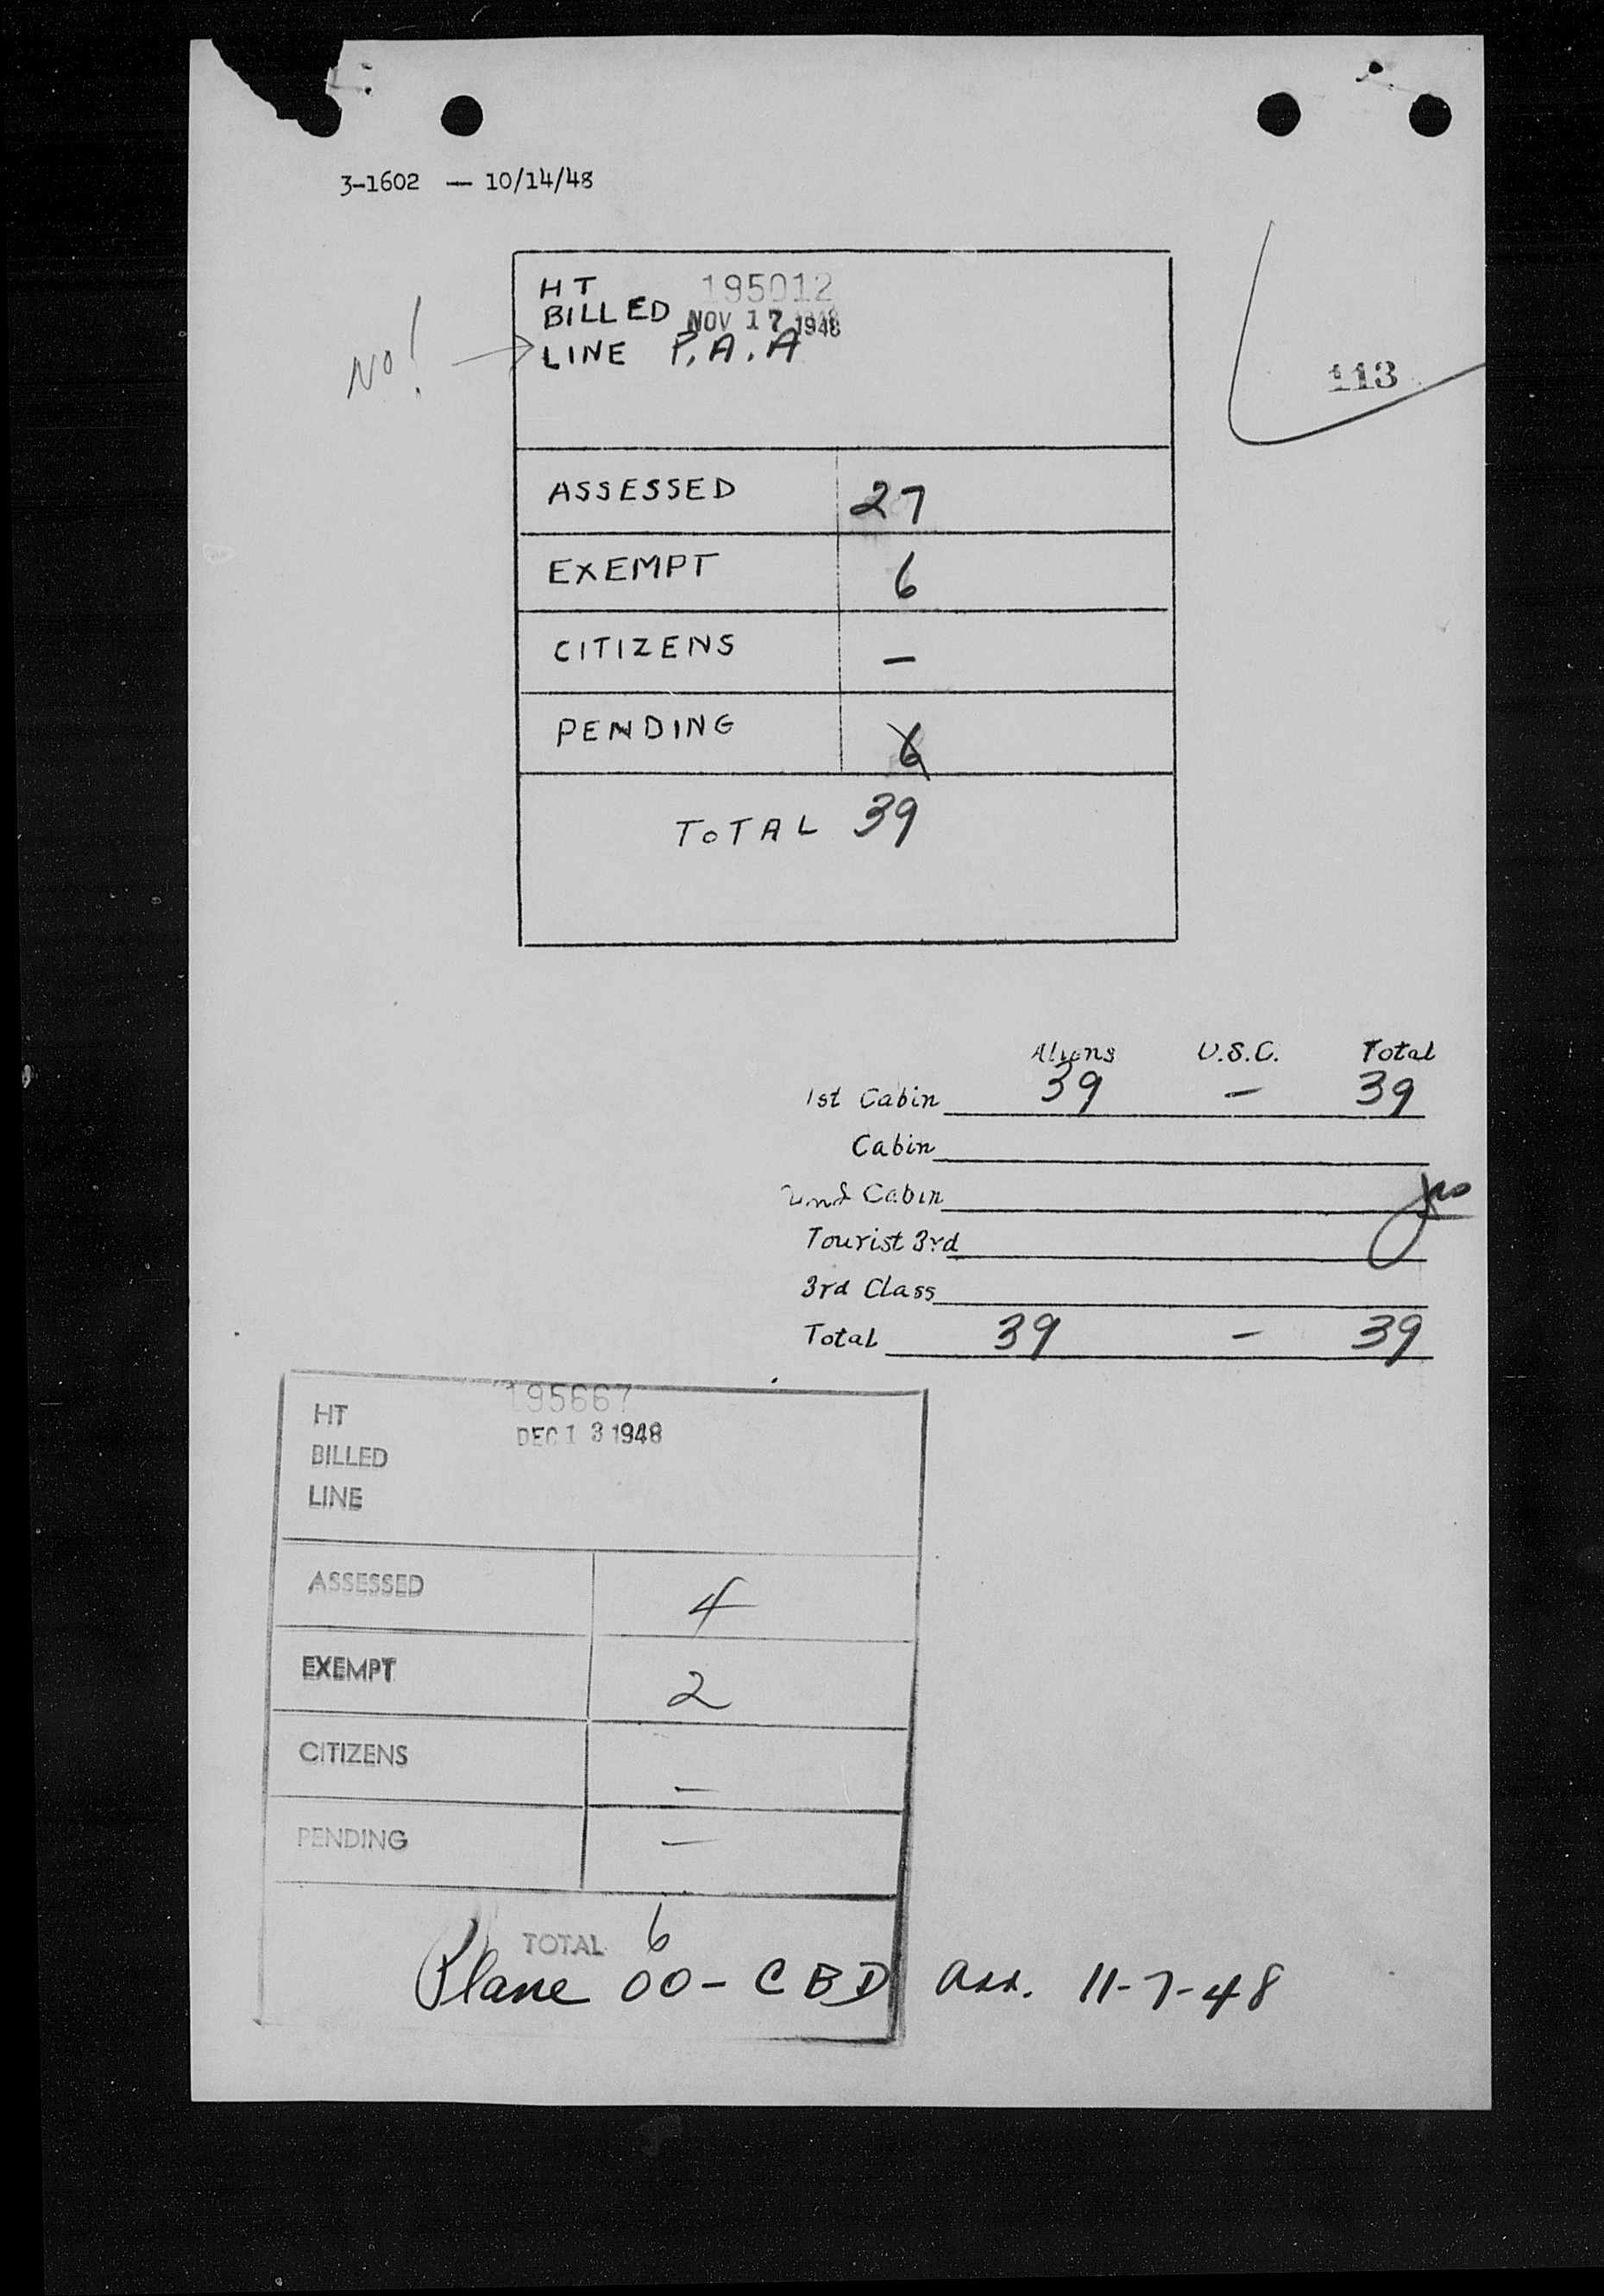 3-1602 — 10/14/48
HT 195012
BILLED NOV 17 1948
NO! LINE P.A.A
113
ASSESSED 27
EXEMPT 6
CITIZENS —
PENDING 6
TOTAL 39
Aliens U.S.C. Total
1st Cabin 39 — 39
Cabin
2nd Cabin
Tourist 3rd
3rd Class
Total 39 — 39
HT 195667
BILLED DEC 13 1948
LINE
ASSESSED 4
EXEMPT 2
CITIZENS —
PENDING —
TOTAL 6
Plane OO-CBD Arr. 11-7-48